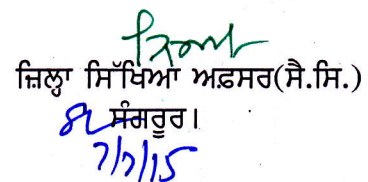 ਜ਼ਿਲ੍ਹਾ ਸਿੱਖਿਆ ਅਫ਼ਸਰ(ਸੈ.ਸਿ.)
ਸੰਗਰੂਰ।
7/7/15